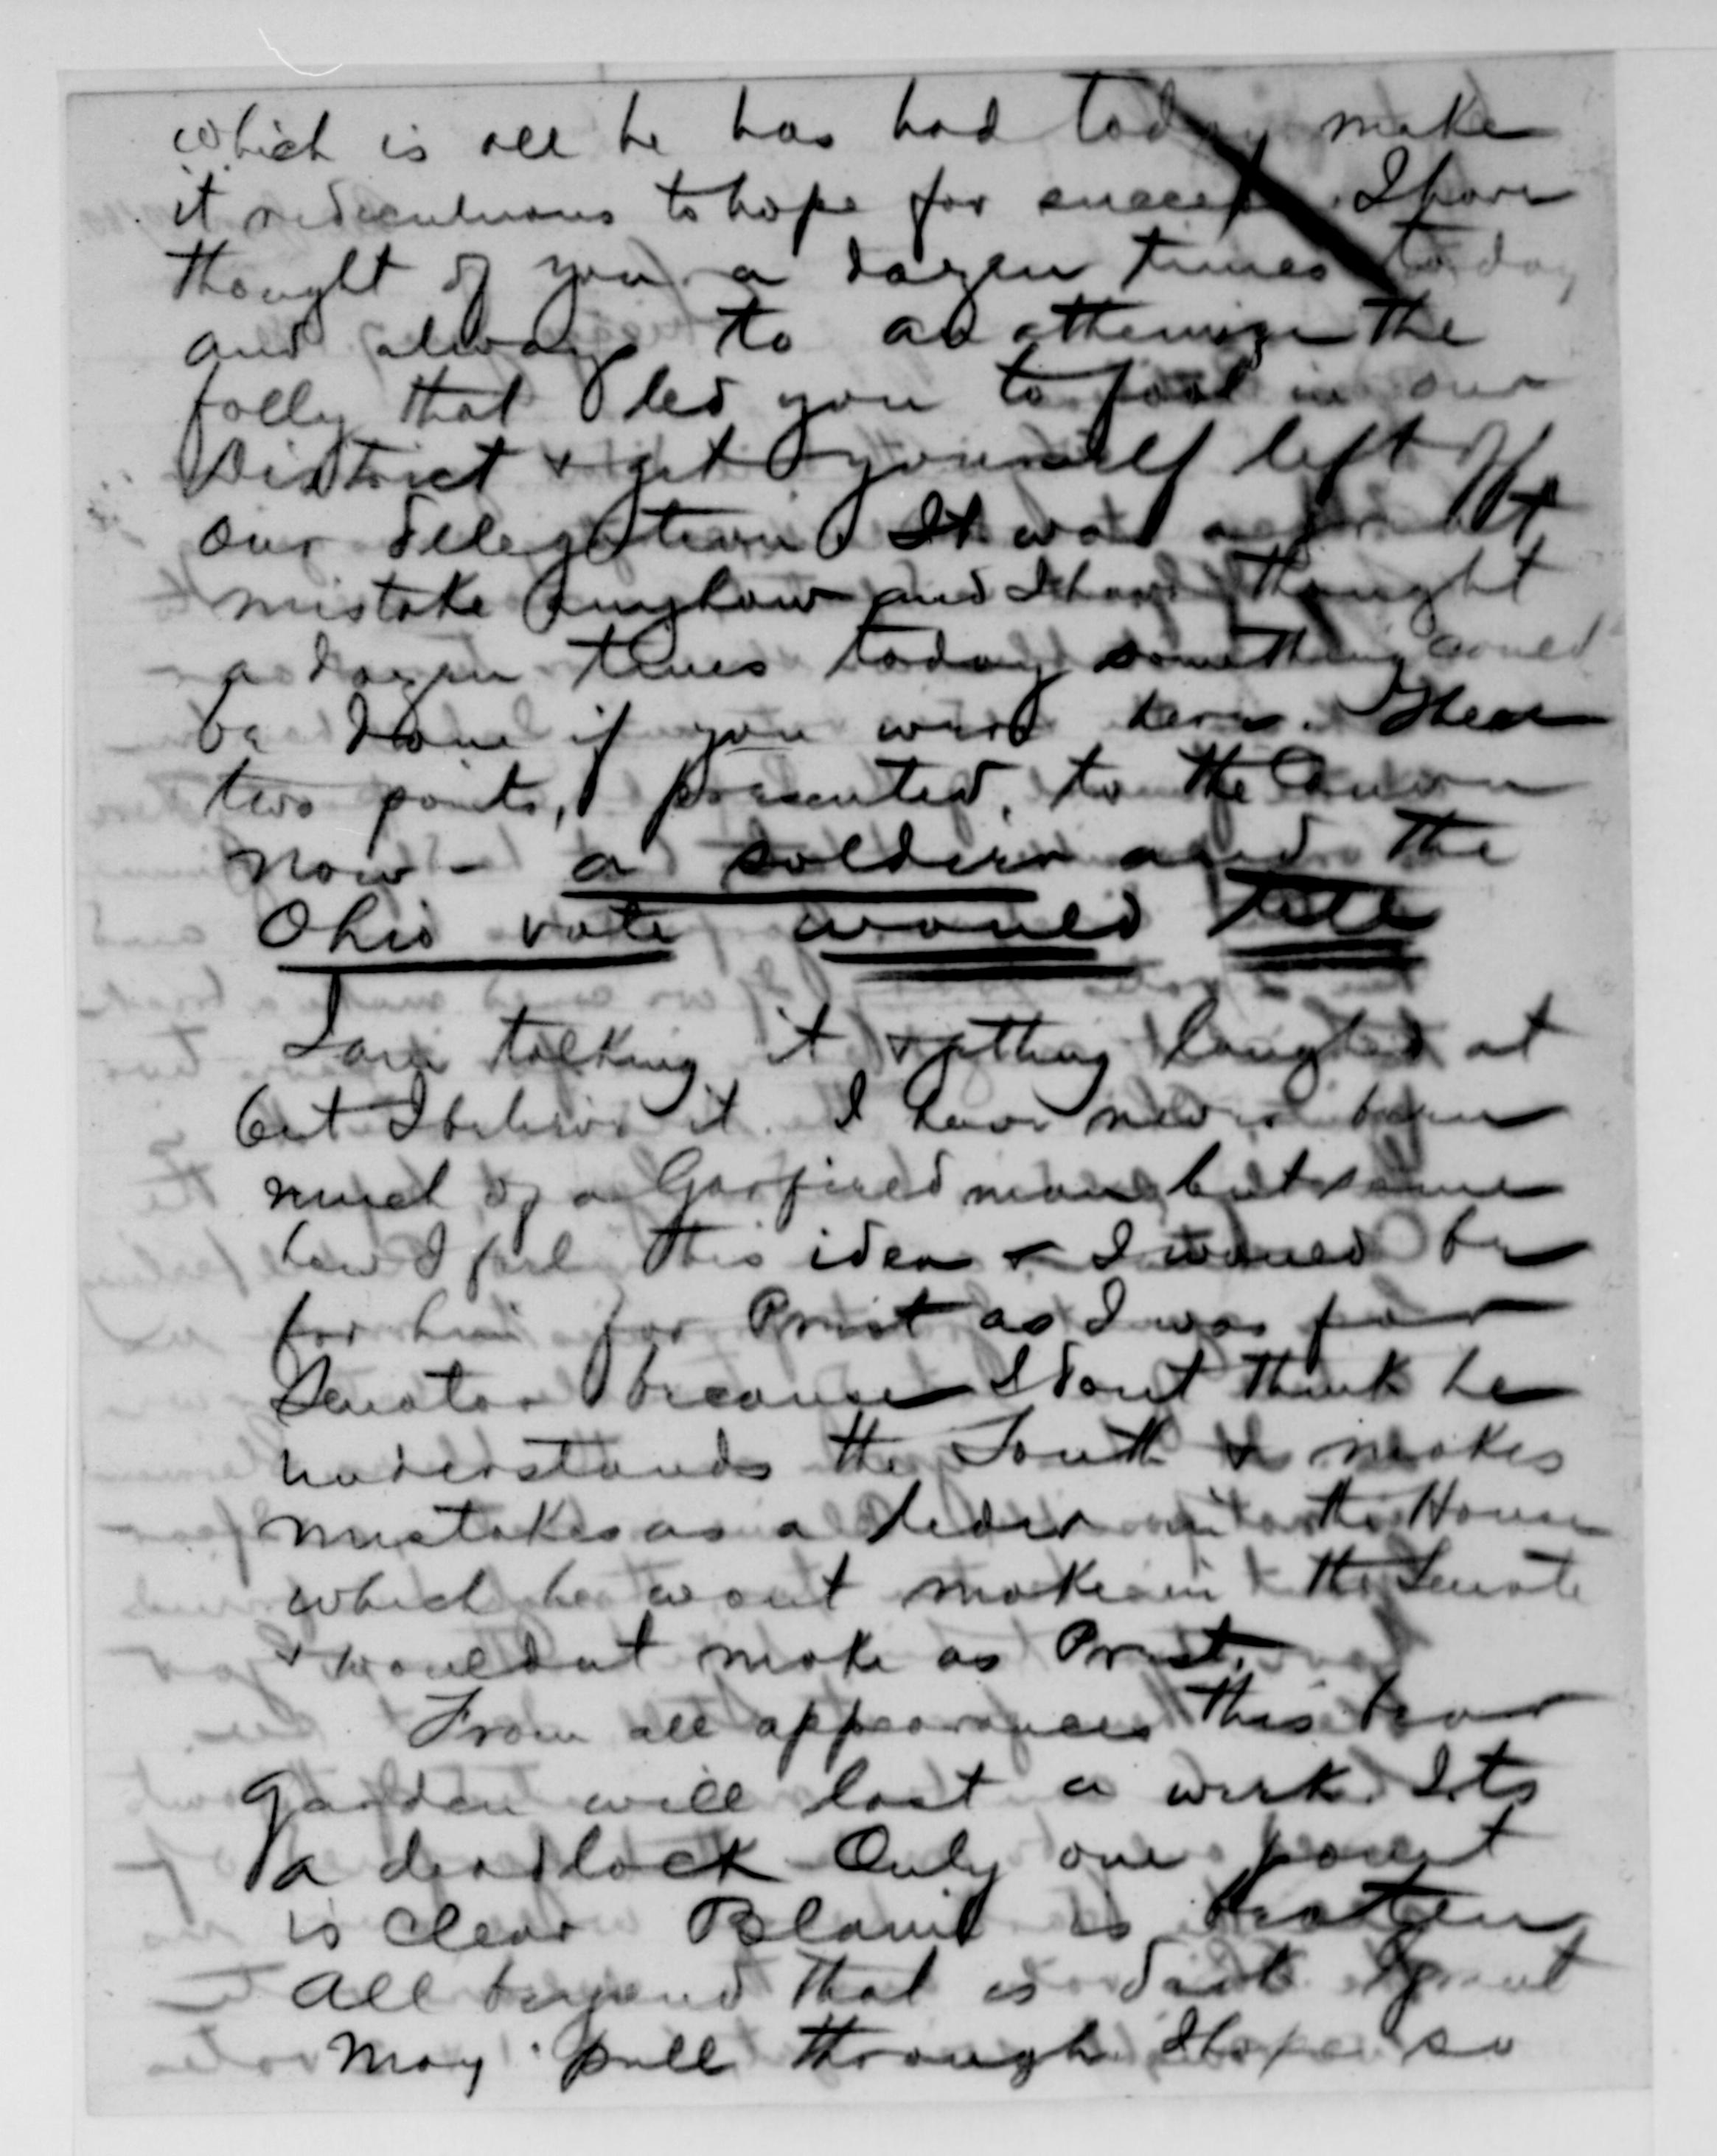 which is all he has had today make
it rediculuous to hope for success. I have
thought of you a dozen times today
and always to anathemize the
folly that led you to fool in our
District & get yourself left off
our delegation It was a
mistake anyhow and I have thought
a dozen times today something could
be done if you were here. These
two points, presented, to the Conven
now - a soldier and the
Ohio vote would tell
I am talking it & getting laughed at
but I believe it. I have never been
much of a Garfield man but some
how I feel this idea & I would be
for him for Prest as I was for
Senator because I dont think he
understands the South & makes
mistakes as a leder in the House
which he wont make in the Senate
& wouldnt make as Prest.
From all appearances this bear
garden will last a week. Its
a deadlock Only one point
is clear Blaine is beaten
All beyond that is dark Grant
may pull through I hope so